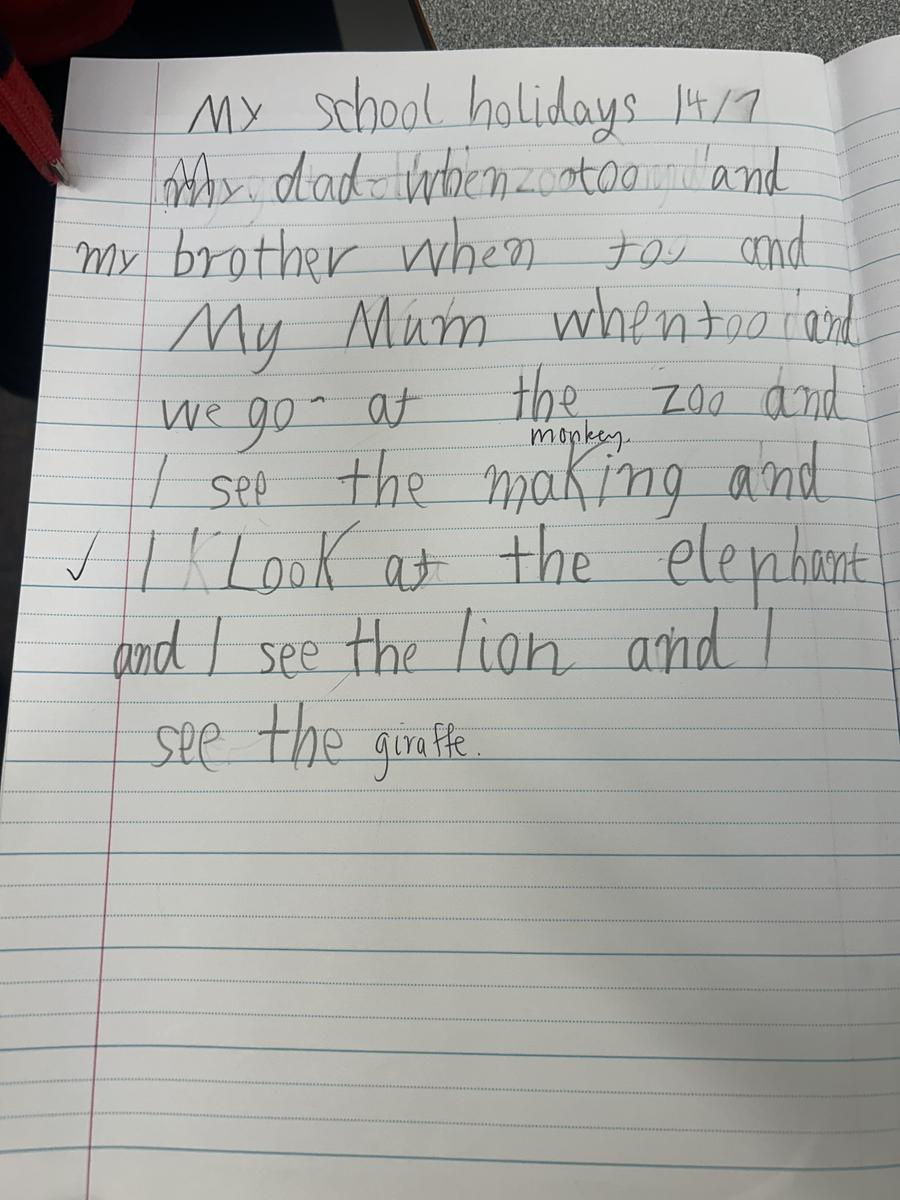 My school holidays 14/7
My dad when too and
my brother when too and
My Mum when too and
we go at the zoo and
monkey.
I see the making and
✓ I Look at the elephant
and I see the lion and I
see the giraffe.